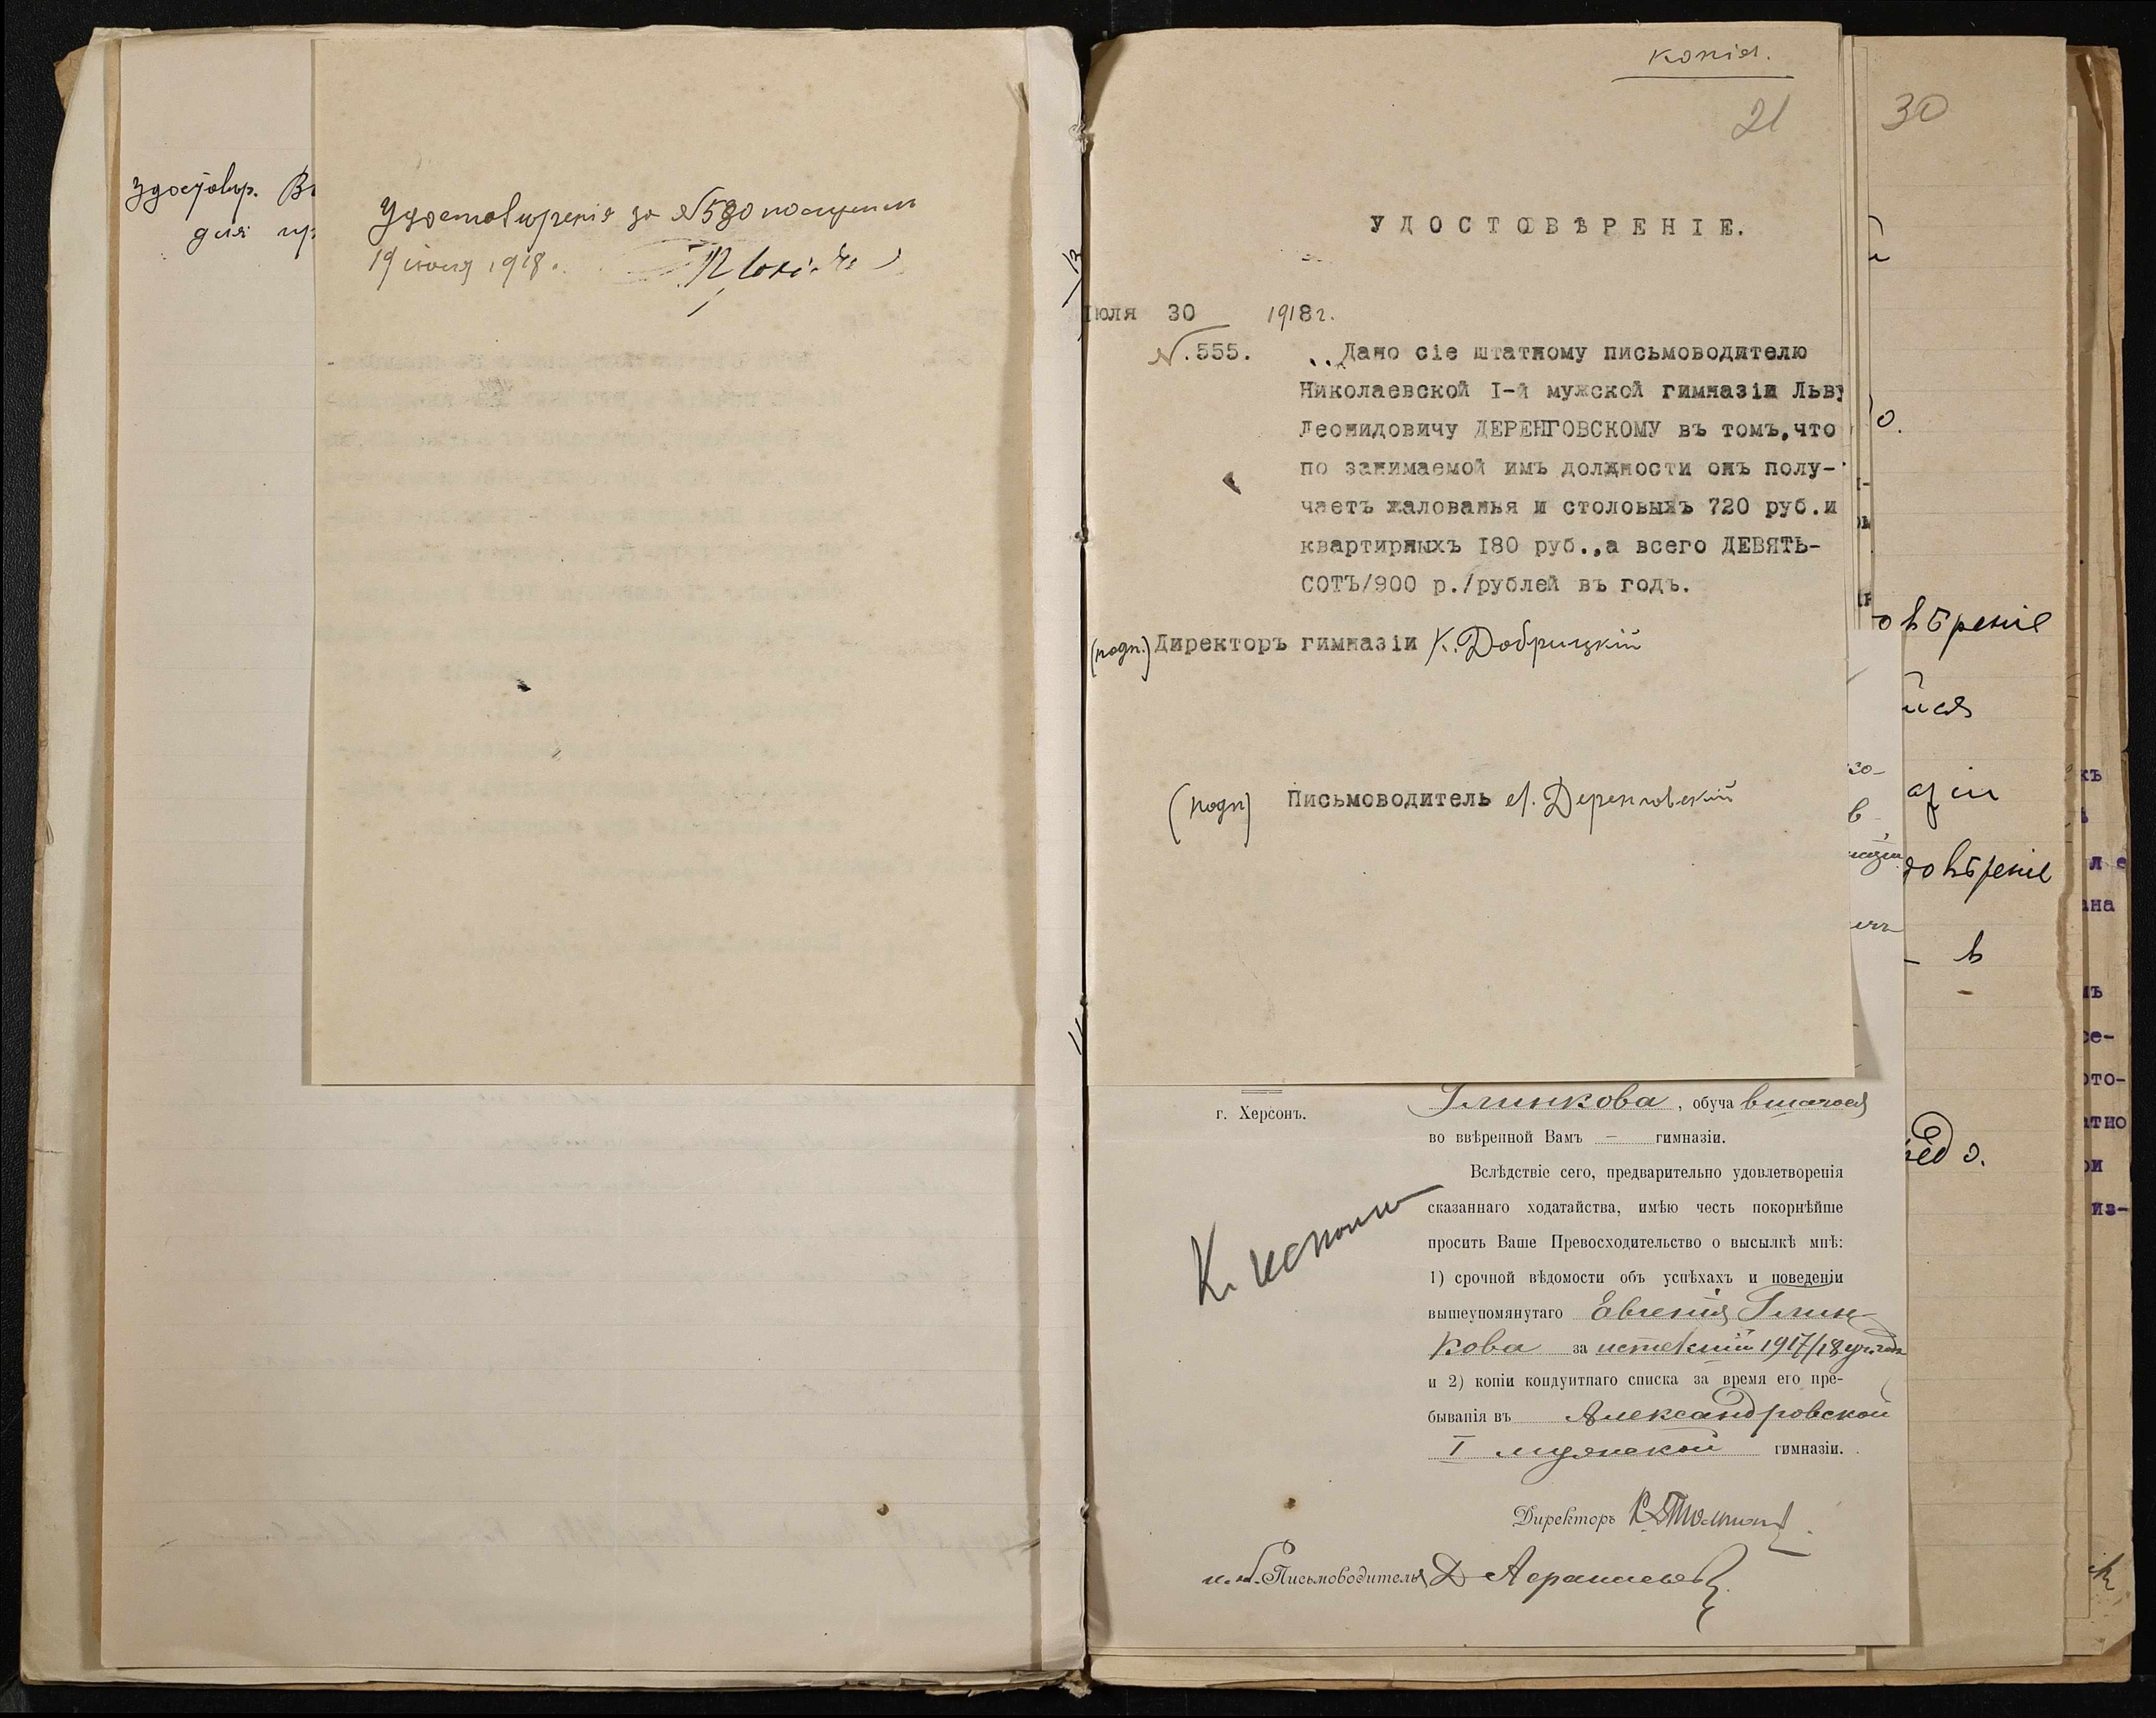 Удостовѣренія за №530 получилъ
19 іюля 1918.
копія.
21
30
УДОСТОВѢРЕНІЕ.
Іюля 30 1918г.
№.555.
Дано сіе штатному письмоводителю
Николаевской I-й мужской гимназіи Льву
Леонидовичу ДЕРЕНГОВСКОМУ въ томъ,что
по занимаемой имъ должности онъ полу-
чаетъ жалованья и столовыхъ 720 руб.и
квартирныхъ I80 руб.,а всего ДЕВЯТЬ-
СОТЪ/900 р./рублей въ годъ.
(подп.) Директоръ гимназіи К.Добрицкій
(подп) Письмоводитель Л. Деренговскій
г. Херсонъ.
Глинкова, обучавшагося
во ввѣренной Вамъ — гимназіи.
Вслѣдствіе сего, предварительно удовлетворенія
сказаннаго ходатайства, имѣю честь покорнѣйше
просить Ваше Превосходительство о высылкѣ мнѣ:
1) срочной вѣдомости объ успѣхахъ и поведеніи
вышеупомянутаго Евгенія Глин-
кова за истекшій 1917/18 уч. годъ
и 2) копіи кондуитнаго списка за время его пре-
быванія въ Александровской
I мужской гимназіи.
Директоръ
и. д. Письмоводителя